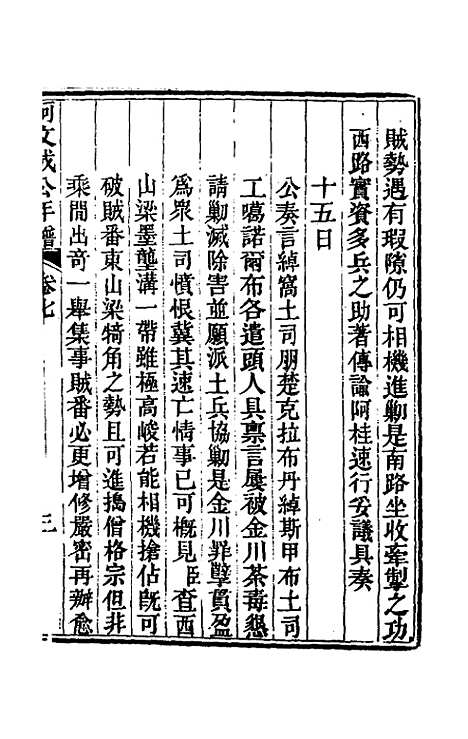 賊勢遇有瑕隙仍可相機進勦是南路坐收牽掣之功
西路實資多兵之助著傳諭阿桂速行妥議具奏
十五日
公奏言綽窩土司朋楚克拉布丹綽斯甲布土司
工噶諾爾布各遣頭人具稟言屢被金川荼毒懇
請勦滅除害並願派土兵協勦是金川罪孽貫盈
爲眾土司憤恨冀其速亡情事已可概見臣查西
山梁墨壟溝一帶雖極高峻若能相機搶佔既可
破賊番東山梁犄角之勢且可進搗僧格宗但非
乘間出奇一舉集事賊番必更增修嚴密再辦愈
阿文成公年譜
卷七
三